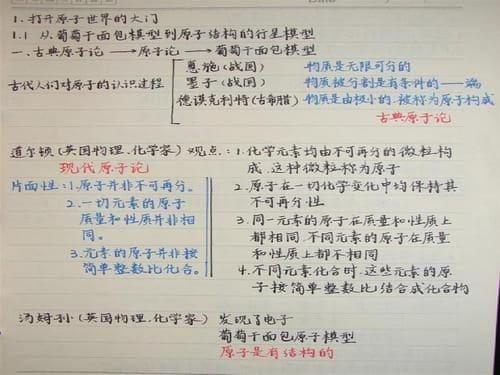 1. 打开原子世界的大门
1.1 从葡萄干面包模型到原子结构的行星模型
一、古典原子论 → 原子论 → 葡萄干面包模型
古代人们对原子的认识过程
惠施(战国) 物质是无限可分的
墨子(战国) 物质被分割是有条件的——端
德谟克利特(古希腊) 物质是由极小的、被称为原子构成
古典原子论
道尔顿(英国物理、化学家)观点:
现代原子论
片面性:1.原子并非不可再分。
2.一切元素的原子
质量和性质并非相
同。
3.元素的原子并非按
简单整数比化合。
1.化学元素均由不可再分的微粒构
成.这种微粒称为原子
2.原子在一切化学变化中均保持其
不可再分性
3.同一元素的原子在质量和性质上
都相同,不同元素的原子在质量
和性质上都不相同
4.不同元素化合时,这些元素的原
子按简单整数比结合成化合物
汤姆孙(英国物理.化学家) 发现了电子
葡萄干面包原子模型
原子是有结构的